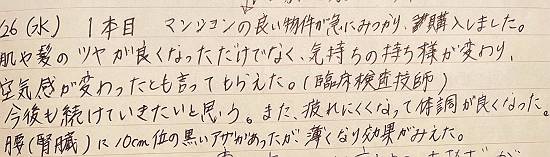 26 (水) 1本目 マンションの良い物件が急にみつかり、購入しました。
肌や髪のツヤが良くなっただけでなく、気持ちの持ち様が変わり、
空気感が変わったとも言ってもらえた。(臨床検査技師)
今後も続けていきたいと思う。また、疲れにくくなって体調が良くなった。
腰(腎臓)に10cm位の黒いアザがあったが、薄くなり効果がみえた。